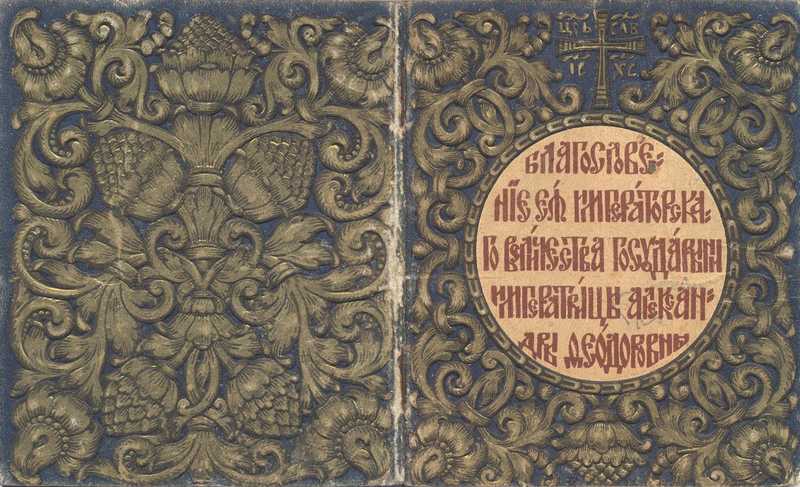 ЦРЬ СЛВ
IС ХС
БЛАГОСЛОВЕ-
НІЕ ЕѦ ИМПЕРАТОРСКА-
ГО ВЕЛИЧЕСТВА ГОСУДАРЫНИ
ИМПЕРАТРИЦЫ АЛЕКСАН-
ДРЫ ѲЕОДОРОВНЫ